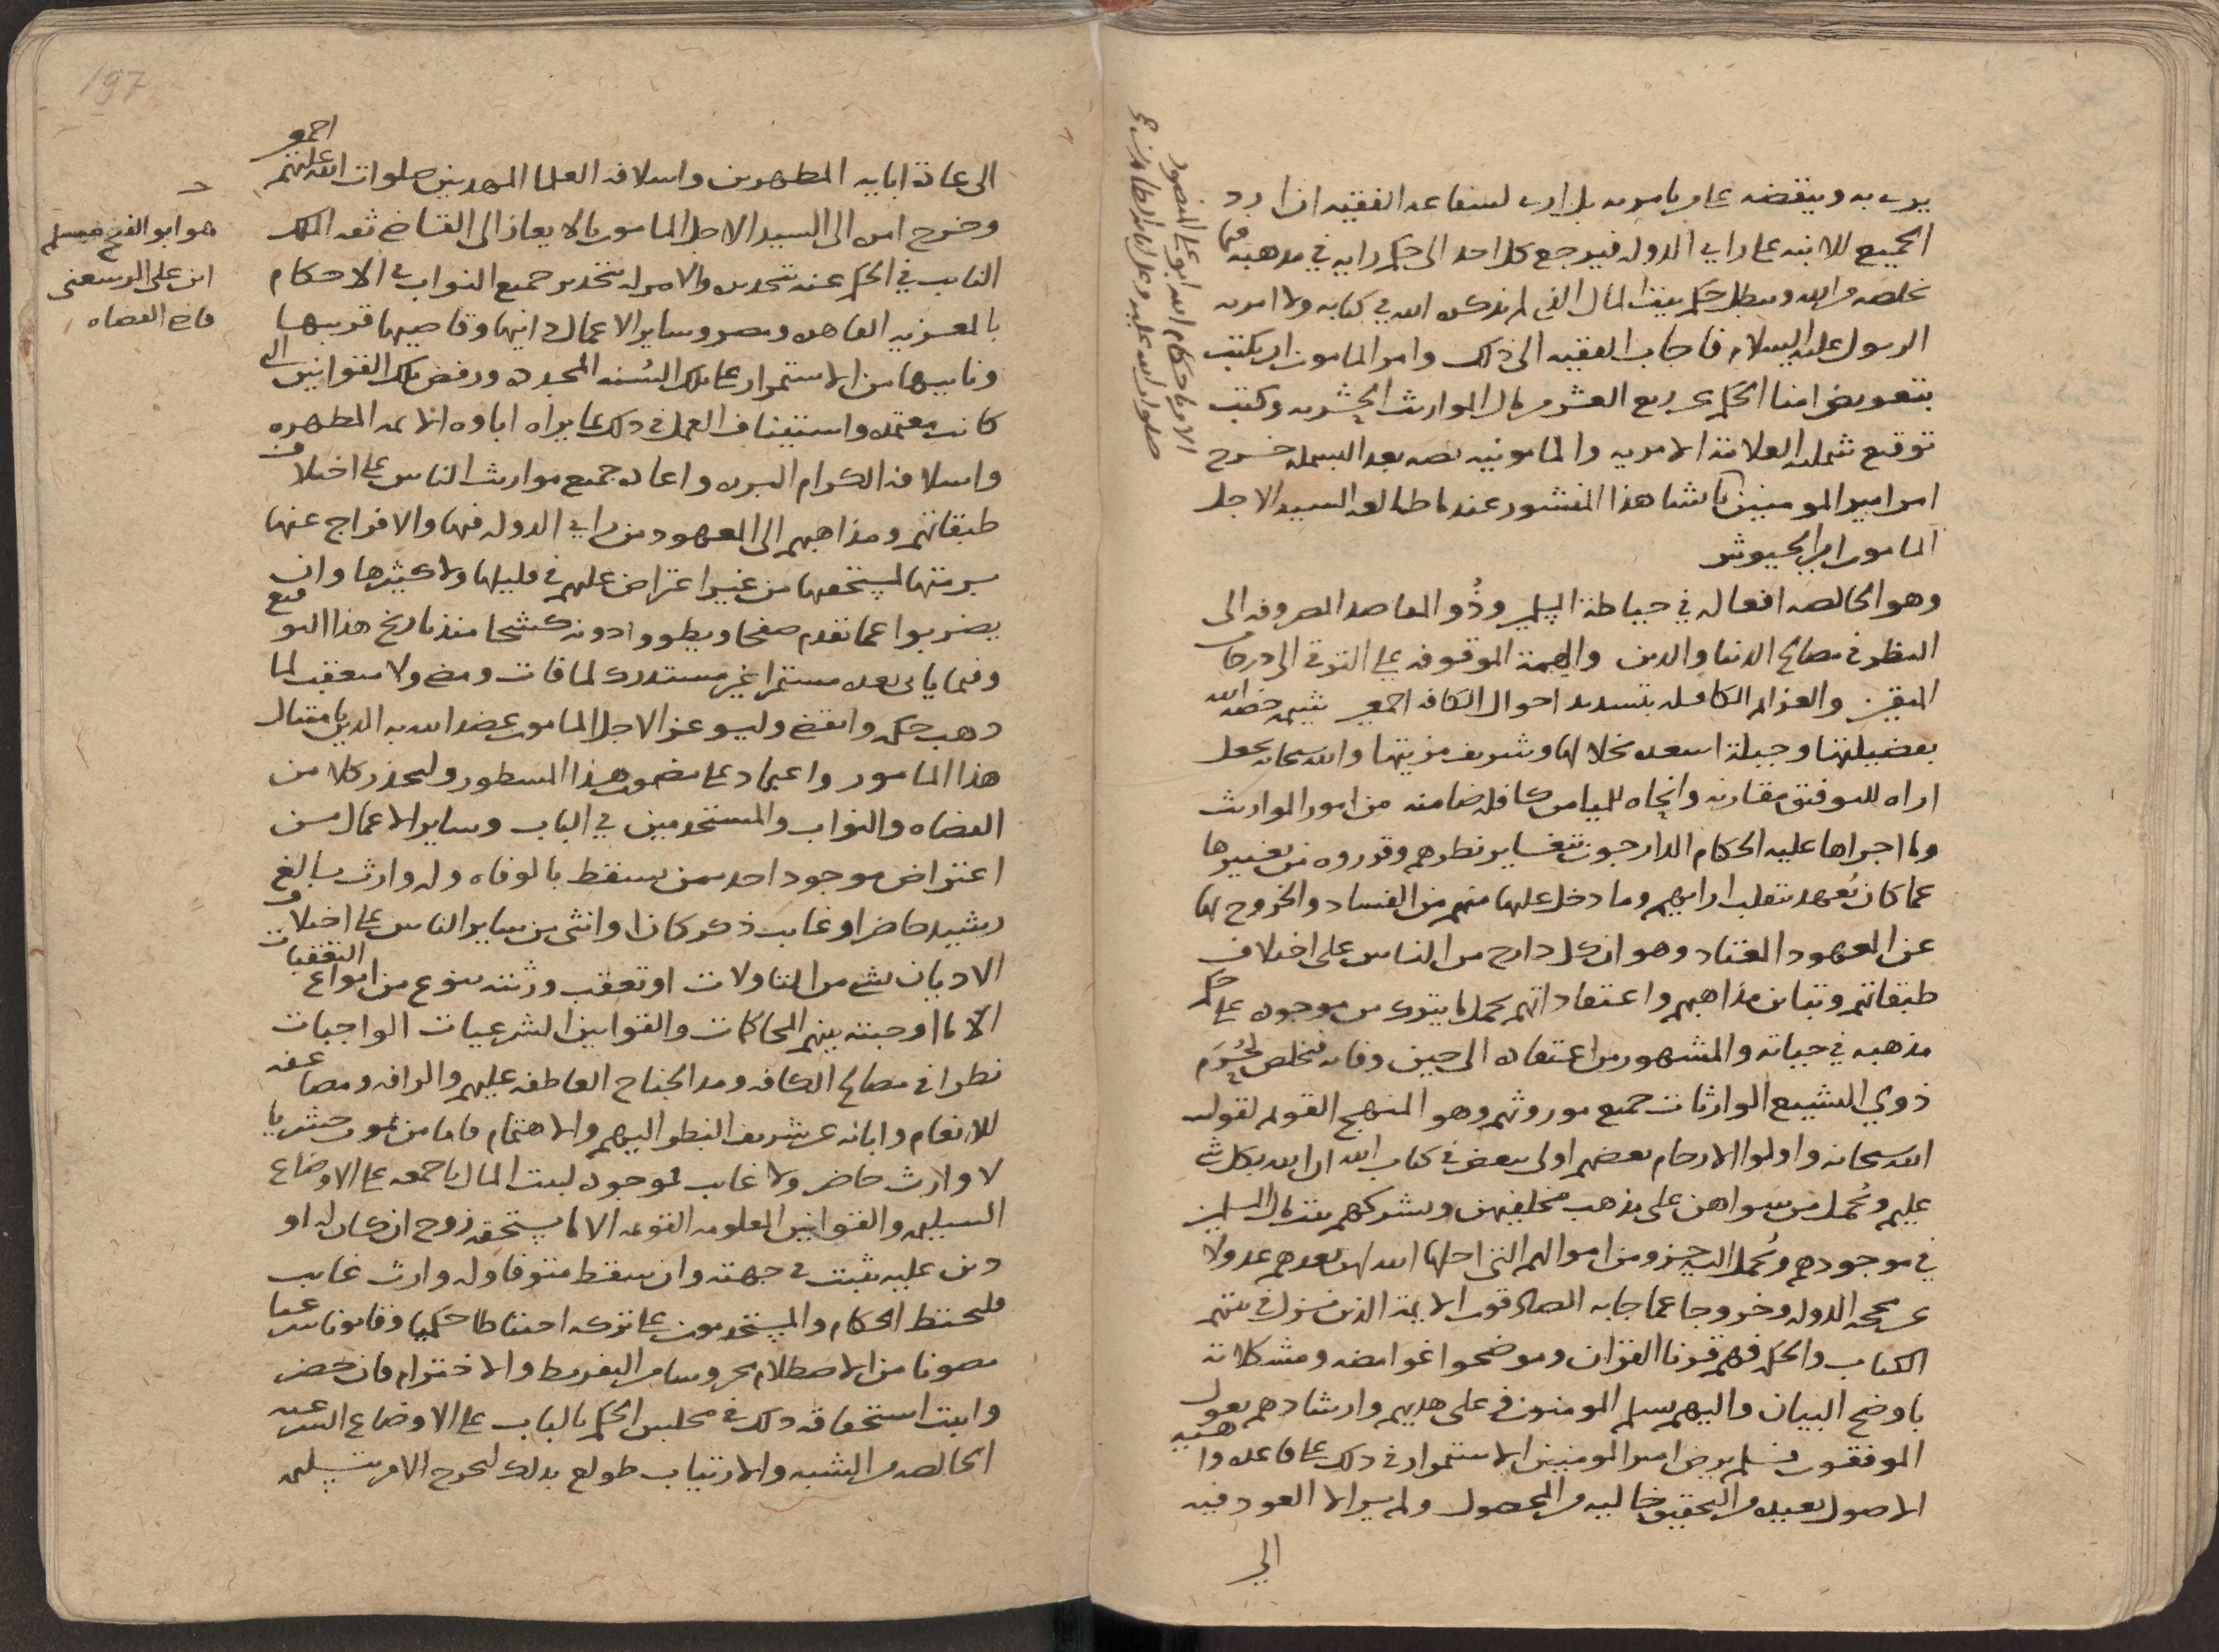 يرى به وينقضه على ما يامر به بل ارى لشفاعه الفقيه ان ارد
الجميع للابنه على راي الدوله فيرجع كل احد الى حكم رايه في مذهبه فيما
يخلصه من الله ويبطل حكم بيت المال الذي لم يذكره الله في كتابه ولا امر به
الرسول عليه السلام فاجاب الفقيه الى ذلك وامر المامون ان يكتب
بتعويض امنا الحكم عن ربع العشر من مال المواريث الحشريه وكتب
توقيع شملته العلامة الامريه والمامونيه نصه بعد البسمله خرج
امر امير المومنين بانشا هذا المنشور عندما طالعه السيد الاجل
المامون امير الجيوش
وهو الخالصه افعاله في حياطة المسلمين وذو المقاصد المصروفه الى
النظر في مصالح الدنيا والدين والهمة الموقوفه على الترقي الى درجات
المتقين والعزايم الكافله بتسديد احوال الكافه اجمعين شيمه خصه الله
بفضيلتها وجبلة اسعده بخلالها وشريف مزيتها والله سبحانه يجعل
اراه للتوفيق مقارنه وانحاه للميامن كافله ضامنه من امور المواريث
وما اجراها عليه الحكام الدارجون بتغاير نظرهم وقرروه من تغييرها
عما كان يُعهد بتقلب ارايهم وما دخل عليها منهم من الفساد والخروج بها
عن المعهود المعتاد وهو ان كل دارج من الناس على اختلاف
طبقاتهم وتباين مذاهبهم واعتقاداتهم يحمل ما يترك من موجوده على حكم
مذهبه في حياته والمشهور من اعتقاده الى حين وفاته فيخلص لحُرَم
ذوي التشييع الوارثات جميع موروثهم وهو المنهج القويم لقول
الله سبحانه واولوا الارحام بعضهم اولى ببعض في كتاب الله ان الله بكل شي
عليم ويُحمل من سواهن على مذهب مخلفيهن ويشركهم بيت مال المسلمين
في موجودهم ويُحمل اليه جزو من اموالهم التي احلها الله لهن بعدهم عدولا
عن محجه الدوله وخروجا عما جا به الصادقون الايمة الذين نزل في بيتهم
الكتاب والحكمه فهم قرنا القران وموضحوا غوامضه ومشكلاته
باوضح البيان واليهم سلم المومنون وعلى هديهم وارشادهم يعول
الموفقون فلم يرض امير المومنين الاستمرار في ذلك على قاعده واهيه
الاصول بعيده من التحقيق خاليه من المحصول ولم ير الا العود فيه
الى
الامر باحكام الله ابو علي المنصور
صلوات الله عليه وعلى ابايه الطاهرين
197
الى عادة ابايه المطهرين واسلافه العلما المهديين صلوات الله عليهم اجمعين
وخرج امره الى السيد الاجل المامون بالايعاز الى القاضي ثقه الملك
النايب في الحكم عنه بتحذيره والامر له بتحذير جميع النواب في الاحكام
بالمعزيه القاهره ومصر وساير الاعمال دانيها وقاصيها قريبها
ونايبها من الاستمرار على تلك السُنه المجدده ورفض تلك القوانين التي
كانت معتمده واستيناف العمل في ذلك بما يراه اباوه الايمه المطهره
واسلافه الكرام البرره واعاده جميع مواريث الناس على اختلاف
طبقاتهم ومذاهبهم الى المعهود من راي الدوله فيها والافراج عنها
برمتها لمستحقها من غير اعتراض عليهم في قليلها ولا كثيرها وان
يضربوا عما تقدم صفحا ويطووا دونه كشحا منذ تاريخ هذا التوقيع
وفيما ياتي بعده مستمرا غير مستدرك لما فات ومضى ولا متعقب لما
ذهب حكمه وانقضى وليوعز الاجل المامون عضد الله به الدين بامتثال
هذا المامور واعتماد على مضمون هذا المسطور وليحذر كلا من
القضاه والنواب والمستخدمين في الباب وساير الاعمال من
اعتراض موجود احد ممن يسقط بالوفاه وله وارث بالغ
رشيد حاضر او غايب ذكر كان او انثى من ساير الناس على اختلاف
الاديان بشي من التاولات او تعقب ورثته بنوع من انواع التعقبات
الا ما اوجبته بينهم المحاكمات والقوانين الشرعيات الواجبات
نظرا في مصالح الكافه ومد الجناح العاطفه عليهم والرافه ومضاعفه
للانعام وابانه عن شريف النظر اليهم والاهتمام فاما من يموت حشريا
لا وارث حاضر ولا غايب فموجوده لبيت المال باجمعه على الاوضاع
السليمه والقوانين المعلومه القويمه الا ما يستحقه زوج ان كان له او
دين عليه يثبت في جهته وان سقط متوفا وله وارث غايب
فليحتط الحكام والمستخدمون على تركه احتياطا حكميا وقانونا شرعيا
مصونا من الاصطلام محروسا من التفريط والاخترام فان حضر
واثبت استحقاقه ذلك في مجلس الحكم بالباب على الاوضاع الشرعيه
الخالصه من الشبه والارتياب طولع بذلك ليخرج الامر بتسليمه
هو ابو الفتح مسلم
ابن علي الرسعني
قاضي القضاه